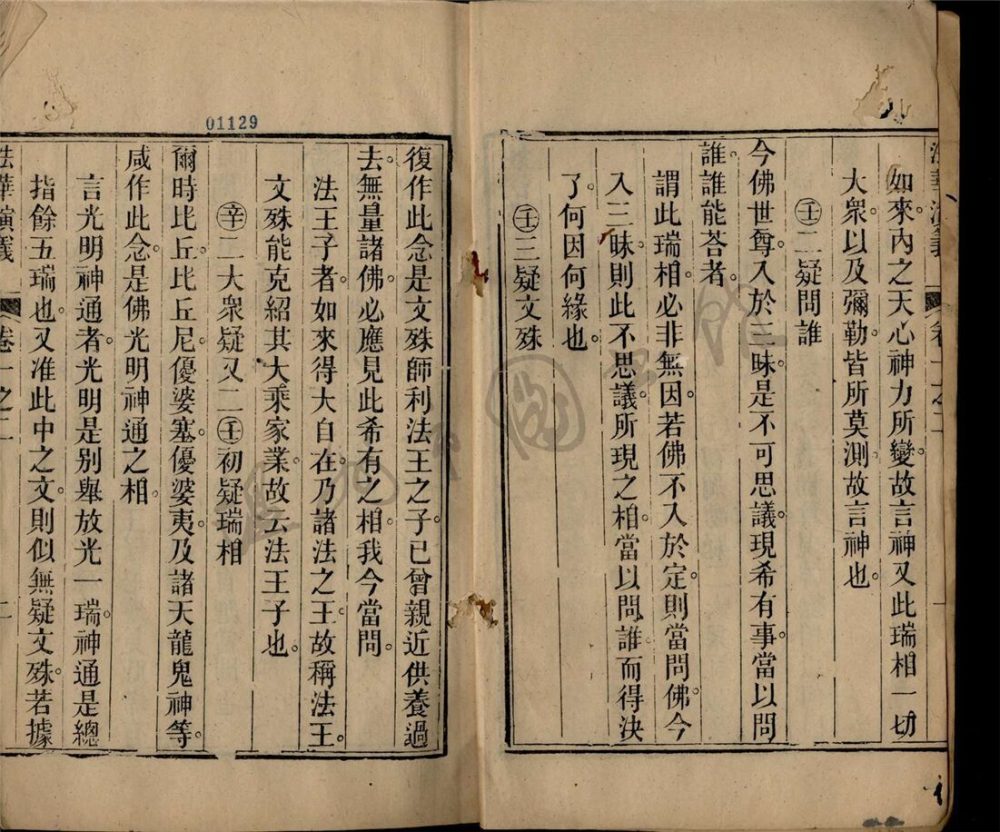 如來。內之天心神力所變。故言神又此瑞相一切
大衆。以及彌勒。皆所莫測。故言神也。
㊂二疑問誰
今佛世尊。入於三昧。是不可思議。現希有事。當以問
誰。誰能荅者。
謂此瑞相。必非無因。若佛不入於定。則當問佛。今
入三昧。則此不思議。所現之相。當以問誰。而得決
了。何因何緣也。
三疑文殊
01129
復作此念。是文殊師利法王之子。已曾親近供養。過
去。無量諸佛。必應見此希有之相。我今當問。
法王子者。如來得大自在。乃諸法之王。故稱法王。
文殊能克紹其大乘家業。故云法王子也。
辛二大衆疑又二壬初疑瑞相
爾時比丘。比丘尼。優婆塞。優婆夷。及諸天龍鬼神等。
咸作此念。是佛光明神通之相。
言光明神通者。光明是别舉放光一瑞。神通是總
指餘五瑞也。又准此中之文。則似無疑文殊。若據
法華演義 卷一之二 二